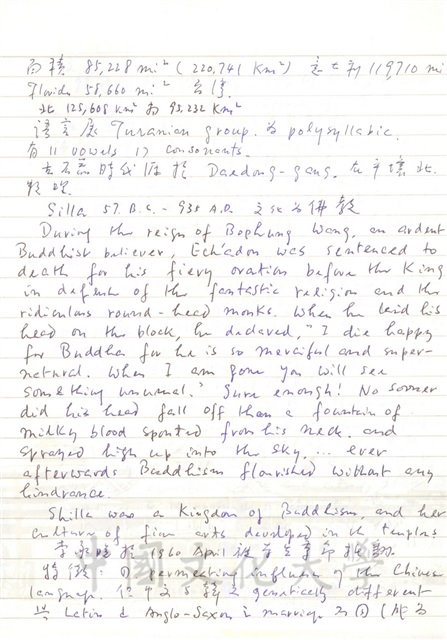 面積 85,228 mi² (220,741 Km²) 119710 mi
Florida 58,660 mi²
北 125,608 Km² 南 95,232 Km²
語言屬 Turanian group. 為 polysyllabic.
有 11 vowels 17 consonants.
Daedong-gang. 在平壤北
Silla 57. B.C. - 935 A.D. 文化為佛教
During the reign of Bophung Wang, an ardent
Buddhist believer, Ech'adon was sentenced to
death for his fiery oration before the King
in defense of the fantastic religion and the
ridiculous round-head monks. When he laid his
head on the block, he declared, "I die happy
for Buddha for he is so merciful and super-
natural. When I am gone you will see
something unusual." Sure enough! No sooner
did his head fall off than a fountain of
milky blood spouted from his neck and
sprayed high up into the sky, ... ever
afterwards Buddhism flourished without any
hindrance.
Shilla was a Kingdom of Buddhism, and her
culture of fine arts developed in the temples
1960 April
① permeating influence of the Chinese
language. genetically different
Latin & Anglo-Saxon marriage ②
中國文化大學